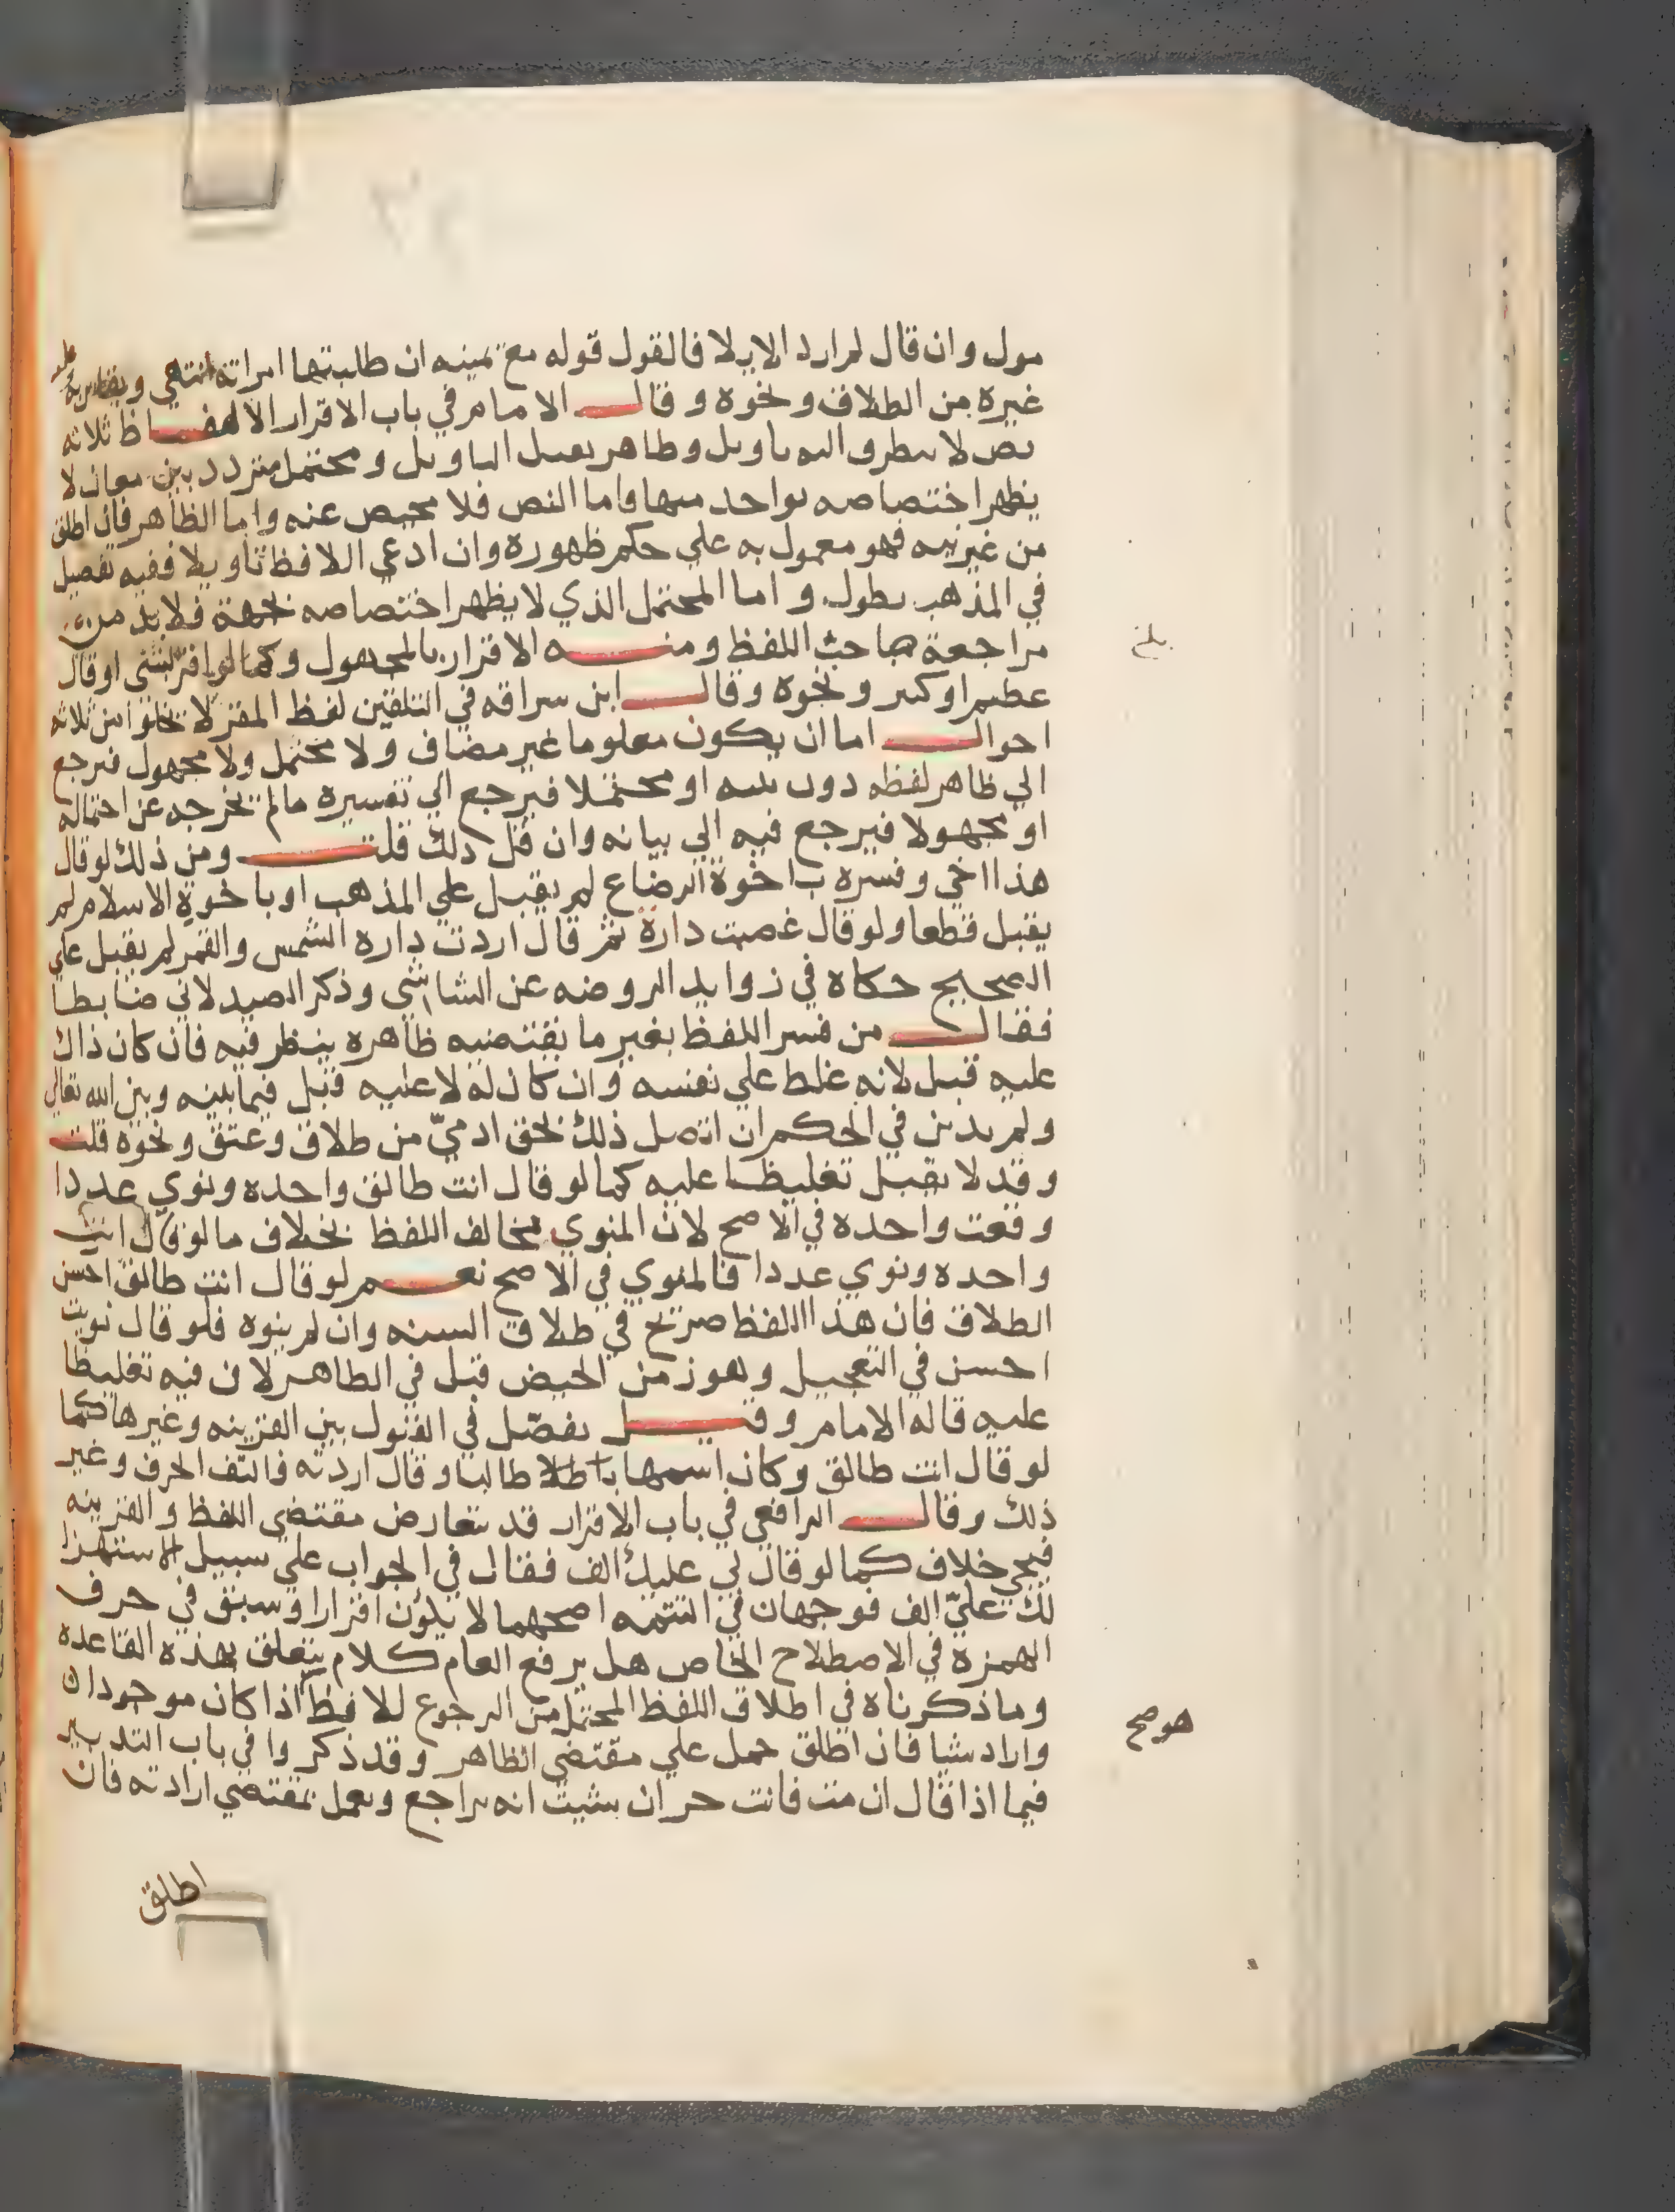 مول وان قال لم ارد الايلا فالقول قوله مع يمينه ان طلبتها امراته انتهى ويقاس به عليه
غيره من الطلاق ونحوه وقال الامام في باب الاقرار الالفاظ ثلاثه
نص لا يتطرق اليه تاويل وظاهر يقبل التاويل ومحتمل متردد بين معان لا
يظهر اختصاصه بواحد منها فاما النص فلا محيص عنه واما الظاهر فان اطلق
من غير نيه فهو معمول به علي حكم ظهوره وان ادعي اللافظ تاويلا ففيه تفصيل
في المذهب يطول واما المحتمل الذي لا يظهر اختصاصه بجهة فلا بد من
مراجعة صاحب اللفظ ومنه الاقرار بالمجهول وكما لو اقر بشي او قال
عظيم او كبير ونحوه وقال ابن سراقه في التلقين لفظ المقر لا يخلوا من ثلاثه
احوال اما ان يكون معلوما غير مضاف ولا محتمل ولا مجهول فيرجع
الي ظاهر لفظه دون نيته او محتملا فيرجع الي تفسيره مالم يخرجه عن احتماله
او مجهولا فيرجع فيه الي بيانه وان قل ذلك قلت ومن ذلك لو قال
هذا اخي وفسره باخوة الرضاع لم يقبل علي المذهب او باخوة الاسلام لم
يقبل قطعا ولو قال غصبت دارة ثم قال اردت دارة الشمس والقمر لم يقبل علي
الصحيح حكاه في زوايد الروضه عن الشاشي وذكر الصيدلاني ضابطا
فقال من فسر اللفظ بغير ما يقتضيه ظاهره ينظر فيه فان كان ذاك
عليه قبل لانه غلط علي نفسه وان كان له لا عليه قبل فيما بينه وبين الله تعالي
ولم يدين في الحكم ان اتصل ذلك بحق ادميّ من طلاق وعتق ونحوه قلت
وقد لا يقبل تغليظا عليه كما لو قال انت طالق واحده ونوي عددا
وقعت واحده في الاصح لان المنوي يخالف اللفظ بخلاف ما لو قال انت
واحده ونوي عددا فالمنوي في الاصح نعم لو قال انت طالق احسن
الطلاق فان هذا اللفظ صريح في طلاق السنه وان لم ينوه فلو قال نويت
احسن في التعجيل وهو زمن الحيض قبل في الظاهر لان فيه تغليظا
عليه قاله الامام وقيل يفصّل في القبول بين القرينه وغيرها كما
لو قال انت طالق وكان اسمها طالبا وقال اردته فالتف الحرف وغير
ذلك وقال الرافعي في باب الاقرار قد يتعارض مقتضي اللفظ والقرينه
فيجي خلاف كما لو قال لي عليك الف فقال في الجواب علي سبيل الاستهزا
لك عليّ الف فوجهان في التتمه اصحهما لا يكون اقرارا وسبق في حرف
الهمزة في الاصطلاح الخاص هل يرفع العام كلام يتعلق بهذه القاعده
وما ذكرناه في اطلاق اللفظ المحتمل من الرجوع للافظ اذا كان موجودا
واراد شيا فان اطلق حمل علي مقتضي الظاهر وقد ذكروا في باب التدبير
فيما اذا قال ان مت فانت حر ان شيت انه يراجع ويعمل بمقتضي ارادته فان
اطلق
بلغ
هو صح